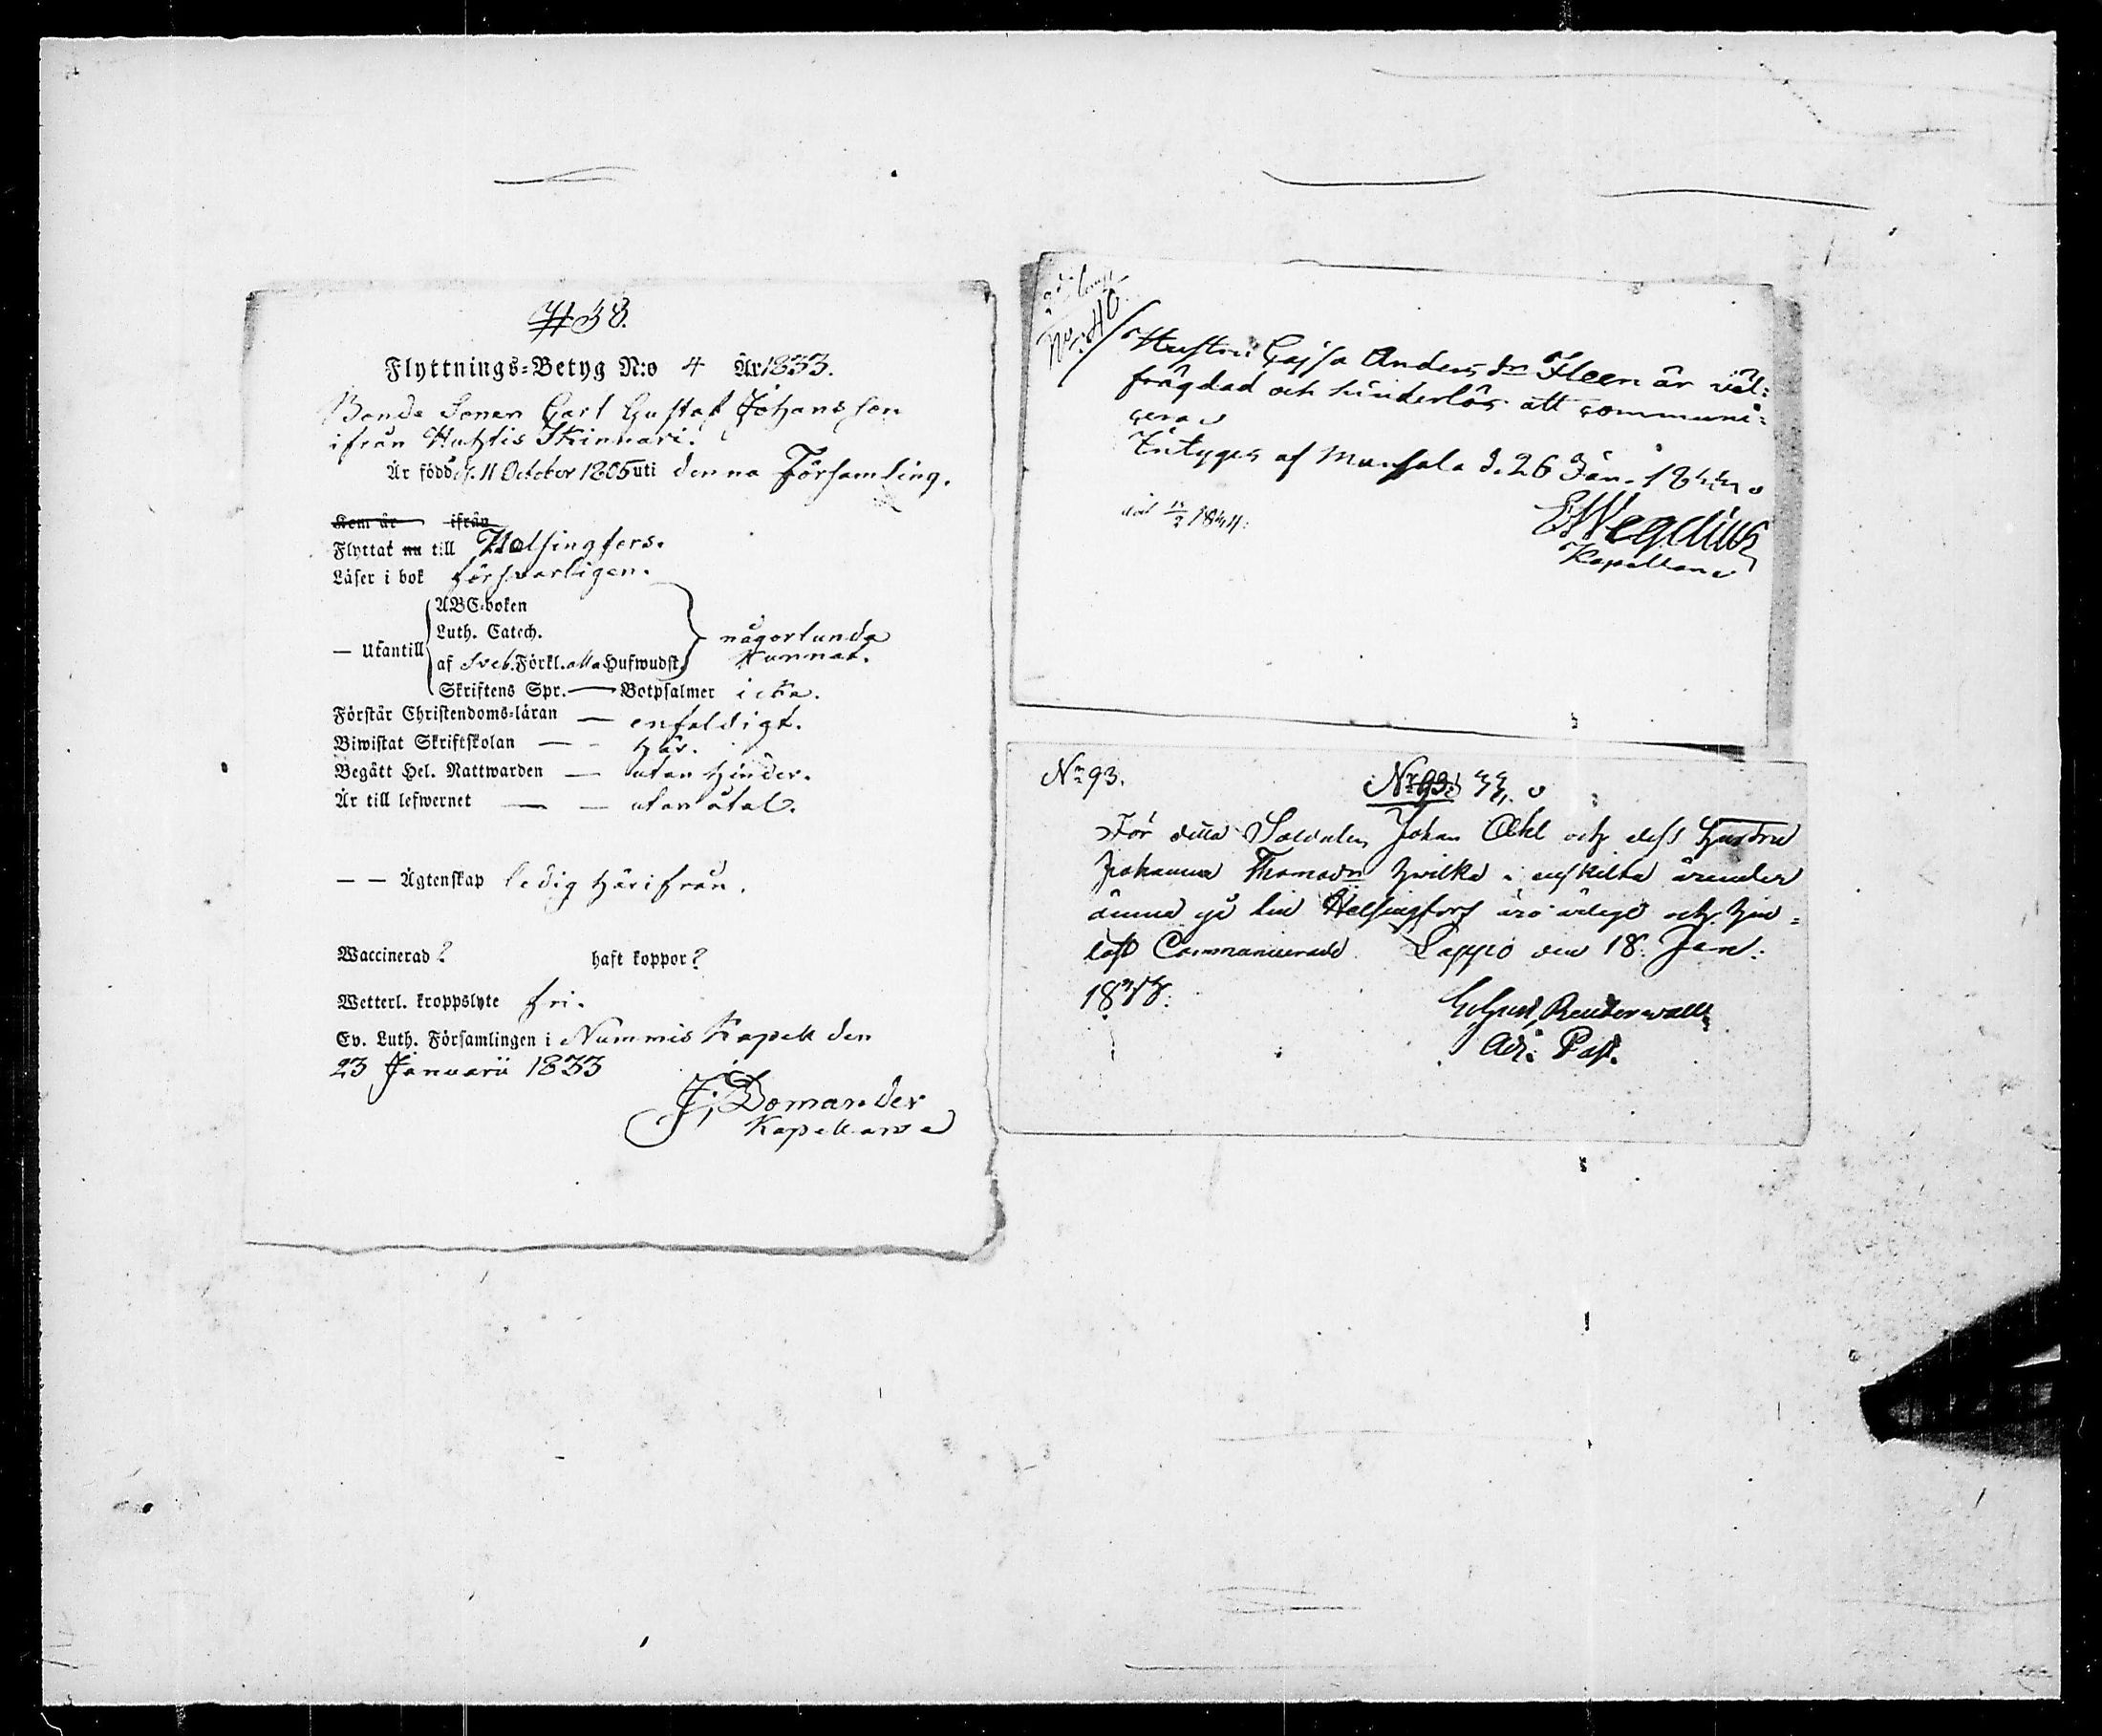 38.
Flyttnings-Betyg N:o 4 År 1833.
Bonde Sonen Carl Gustaf Johansson
ifrån Huhtis Skinnari.
Är född d. 11 October 1805 uti denna Församling.
Kom är ifrån
Flyttat nu till Helsingfors.
Läser i bok försvarligen.
— Utantill
ABC-boken
Luth. Catech.
af Sveb. Förkl. alla Hufwudst.
någorlunda
kunnat.
Skriftens Spr. — Botpsalmer icke.
Förstår Christendoms-läran — enfaldigt.
Biwistat Skriftskolan — här.
Begått Hel. Nattwarden — utan hinder.
Är till lefwernet — — utan åtal.
— — Ägtenskap ledig härifrån.
Waccinerad? haft koppor?
Wetterl. kroppslyte fri.
Ev. Luth. Församlingen i Nummis Kapell den
23 Januarii 1833
J. Domander
Kapellan
No. 40.
Hustru Cajsa Andersdr Fleen är väl-
frägdad och hinderlös att communi-
cera
Intygas af Munsala d. 26 Jan. 1844
1844.
Wegelius
Kapellan
No 93.
No 93.
För detta Soldaten Johan Ahl och dess hustru
Johanna Thomasdr hwilka i enskilta ärender
ämna gå till Helsingfors äro ärlige och hin-
löst Communicerade Lappo den 18 Jan:
Renderwall
Adj. Past.